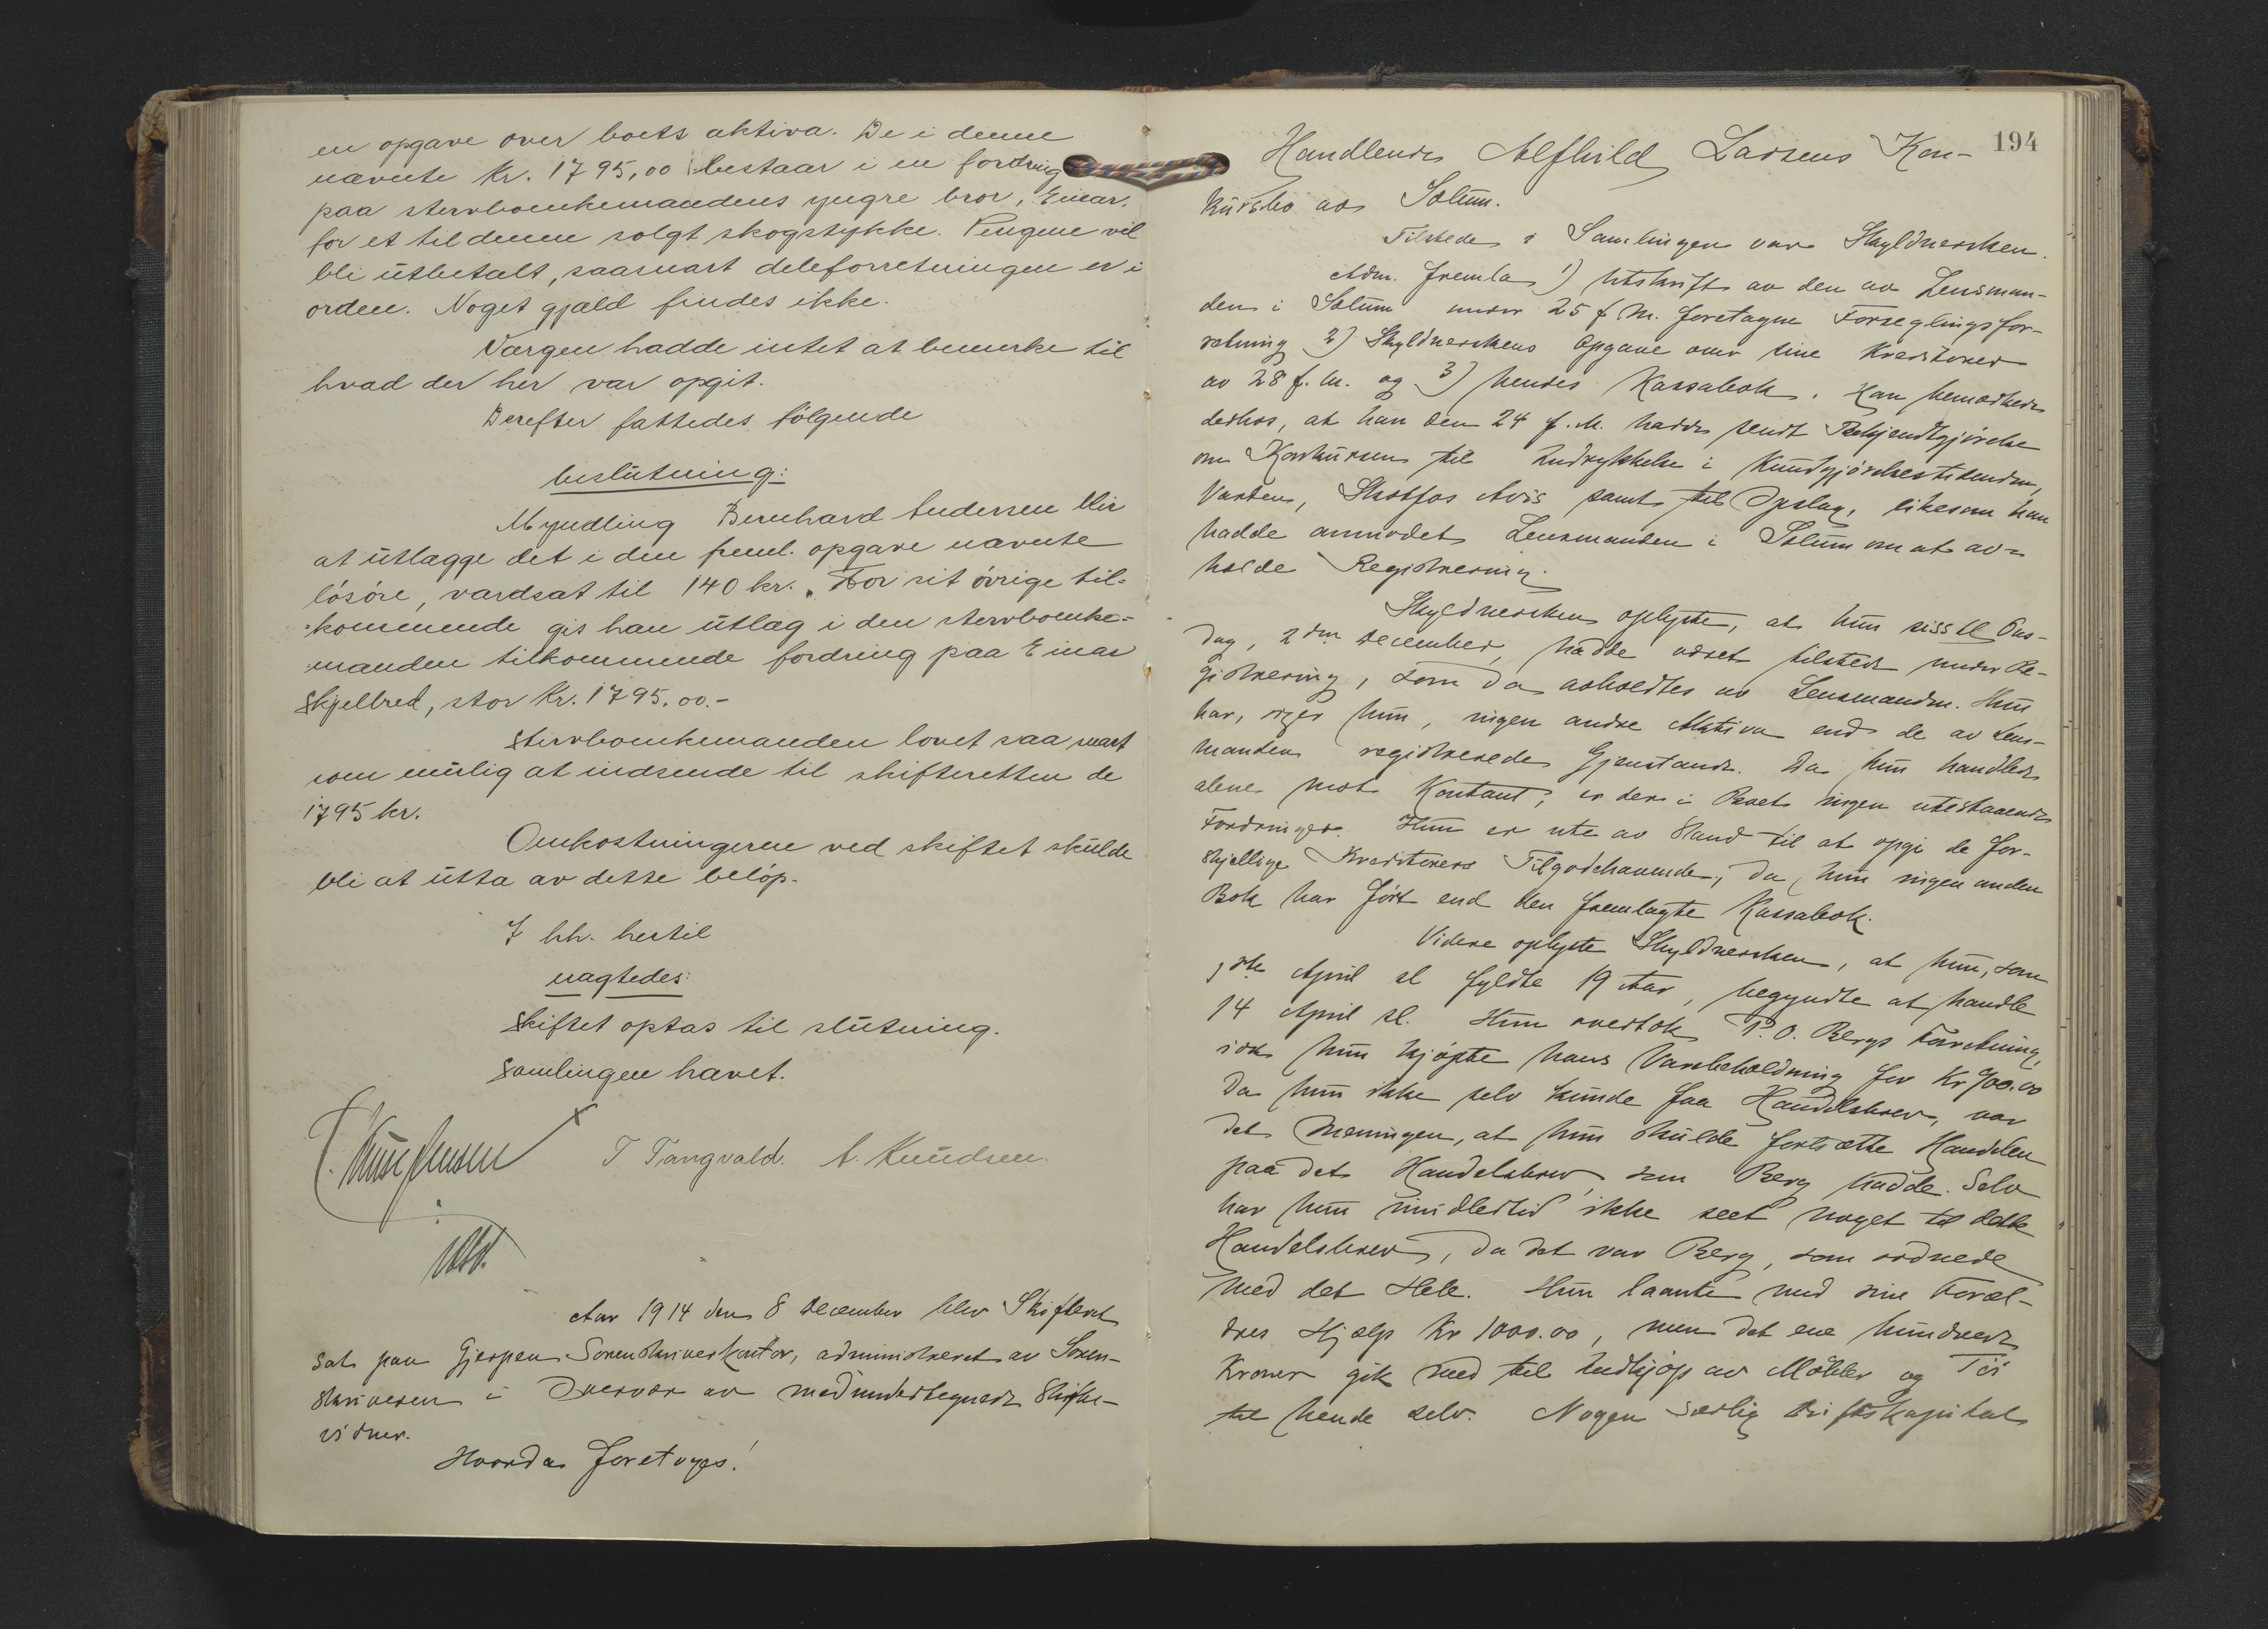 en opgave over boets aktiva. De i denne
nævnte kr. 1795,00 bestaar i en fordring
paa stervboenkemandens yngre bror, Einar,
for et til denne solgt skogstykke. Pengene vil
bli utbetalt, saasnart deleforretningen er i
orden. Noget gjæld findes ikke.
Værgen hadde intet at bemerke til
hvad der her var opgit.
Derefter fattedes følgende
beslutning:
Myndling Bernhard Andersen blir
at utlægge det i den freml. opgave nævnte
løsøre, værdsat til 140 kr. For sit øvrige til-
kommende gis han utlæg i den stervboenke-
manden tilkommende fordring paa Einar
Skjelbred, stor kr. 1795,00.-
Stervboenkemanden lovet saa snart
som mulig at indsende til skifteretten de
1795 kr.
Omkostningerne ved skiftet skulde
bli at utta av dette beløp.
I hh. hertil
vagtedes:
Skiftet optas til slutning.
Samlingen hævet.
T. Tangvald. A. Knudsen.
Aar 1914 den 8 December blev Skifteret
sat paa Gjerpen Sorenskriverkontor, administreret av Soren-
skriveren i Overvær av medundertegnede Skifte-
vidner.
Hvorda foretoges!
194
Handlende Alfhild Larsens Kon-
kursbo av Solum.
Tilstede i Samlingen var Skyldnersken.
Adm. fremla 1) Utskrift av den av Lensman-
den i Solum under 25 f. M. foretagne Forseglingsfor-
retning 2) Skyldnerskens Opgave over sine Kreditorer
av 28 f. M. og 3) hendes Kassabok. Han bemerkede
derhos, at han den 24 f. M. hadde sendt Bekjendtgjørelse
om Konkursen til Indrykkelse i Kundgjørelsestidenden,
Varden, Skotfos Avis samt til Opslag, likesom han
hadde anmodet Lensmanden i Solum om at av-
holde Registrering.
Skyldnersken oplyste, at hun sidstl. Ons-
dag, 2den December, hadde været tilstede under Re-
gistrering, som da avholdtes av Lensmanden. Hun
har, siger hun, ingen andre Aktiva end de av Lens-
manden registrerede Gjenstande. Da hun handlede
alene mot Kontant, er der i Boet ingen utestaaende
Fordringer. Hun er ute av Stand til at opgi de for-
skjellige Kreditorers Tilgodehavende, da hun ingen anden
Bok har ført end den fremlagte Kassabok.
Videre oplyste Skyldnersken, at hun, som
1ste April sl fyldte 19 Aar, begyndte at handle
14 April sl. Hun overtok P. O. Bergs Forretning,
idet hun kjøpte hans Varebeholdning for Kr 900.00
Da hun ikke selv kunde faa Handelsbrev, var
det Meningen, at hun skulde fortsætte Handelen
paa det Handelsbrev, som Berg hadde. Selv
har hun imidlertid ikke seet noget til dette
Handelsbrev, da det var Berg, som ordnede
med det Hele. Hun laante med sine Foræl-
dres Hjælp Kr 1000.00, men det ene hundrede
Kroner gik med til Indkjøp av Møbler og Tøi
til hende selv. Nogen særlig Driftskapital